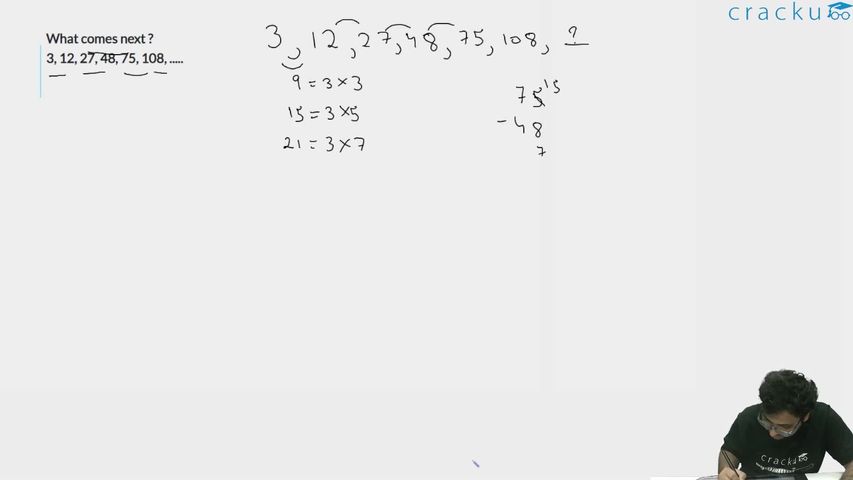 cracku
What comes next ?
3, 12, 27, 48, 75, 108, .....
3, 12, 27, 48, 75, 108, ?
9 = 3 × 3
15 = 3 × 5
21 = 3 × 7
7 5 15
- 4 8
7
cracku